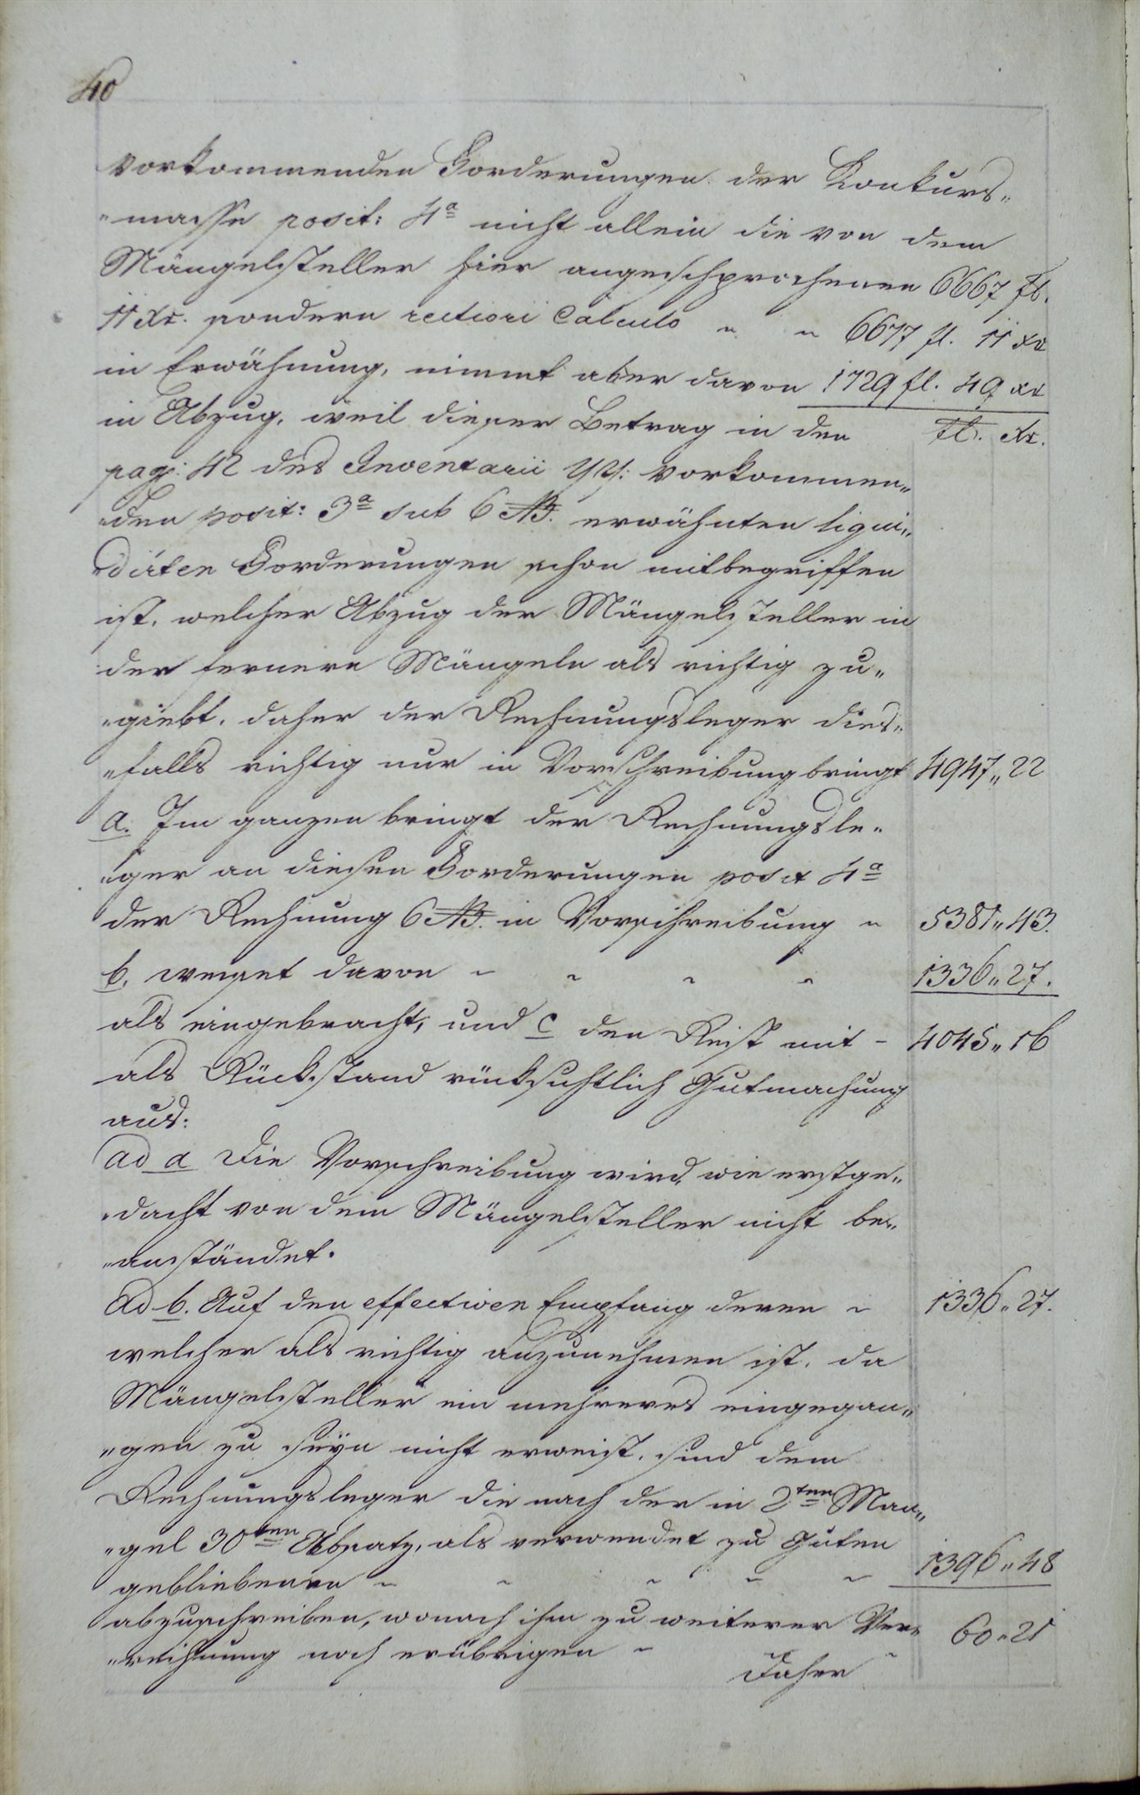 40
vorkommenden Forderungen der Konkurs„
„masse posit: 4a nicht allein die von dem
Mängelsteller hier angeschprochenen 6667 fl.
11 xr. sondern rectiori Calculo „ „ 6677 fl. 11 xr
in Erwähnung, nimmt aber davon 1729 fl. 49 xr
in Abzug, weil dieser Betrag in den fl. xr.
pag: 42 des Inventarii vorkommen„
„den posit: 3a sub 6 erwähnten liqui„
„dirten Forderungen schon mitbegriffen
ist, welcher Abzug der Mängelsteller in
der fernern Mängeln als richtig zu„
„giebt, daher der Rechnungsleger dies„
„falls richtig nur in Vorschreibung bringt 4947„22
a. Im ganzen bringt der Rechnungsle„
„ger an diesen Forderungen posit 4a
der Rechnung 6 in Vorschreibung „ 5381„43.
b. weiset davon „ „ „ „ 1336„27.
als eingebracht, und c den Rest mit – 4045„16
als Rückstand rücksichtlich Gutmachung
aus:
ad a Die Vorschreibung wird wie erstge„
„dacht von dem Mängelsteller nicht be„
„anständet.
Ad b. Auf den effectiven Empfang deren „ 1336„27.
welcher als richtig anzunehmen ist, da
Mängelsteller ein mehreres eingegan„
„gen zu seyn nicht erweist, sind dem
Rechnungsleger die nach der in 2ten Män„
„gel 30ten Absatz, als verwendet zu Guten
gebliebenen „ „ „ „ „ 1396„48
abzuschreiben, wonach ihm zu weiterer Ver„
„rechnung noch erübrigen „ „ 60„21
Daher